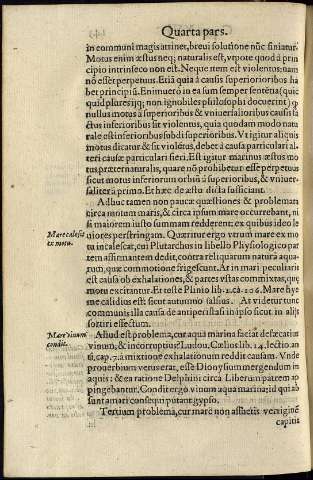 Quarta pars.
in communi magis attinet, brevi solutione nũc finiatur.
Motus enim æstus neq; naturalis est, utpote quod à prin
cipio intrinseco non est. Neque item est violentus: nam
nõ esset perpetuus. Etiã quia à causis superioribus ha
bet principiũ. Enimuero in ea sum semper sentẽtia (quic
quid plures
nullus motus à superioribus & vniuersalioribus causis fa
ctus inferioribus sit violentus, quia quodam modo natu
rale est inferioribus subdi superioribus. Vt igitur aliquis
motus dicatur & sit violẽtus, debet à causa particulari al
teri causæ particulari fieri. Est igitur marinus æstus mo
tus præternaturalis, quare nõ prohibetur esse perpetuus
sicut motus inferiorum orbiũ à superioribus, & vniuer-
saliter à primo. Et hæc de æstu dicta sufficiant.
Adhuc tamen non paucæ quæstiones & problemata
circa motum maris, & circa ipsum mare occurrebant, ni
si maiorem iusto summam redderent: ex quibus ideo le
uiores perstringam. Quæritur ergo verum mare ex mo
tu incalescat, cui Plutarchus in libello Physologico par
tem assirmantem dedit, contra reliquarum natura aqua-
rum, quæ commotione frigescunt. At in mari peculiaris
est causa ob exhalationes, & partes vstas commixtas, quę
motu excitantur. Et teste Plinio lib. 2. ca. 106. Mare hye
me calidius est: sicut autumno salsius. At videtur tunc
communis illa causa de antiperistasi in ipso sicut in alijs
sortiri effectum.
Mare calescit
ex motu.
Aliud est problema, cur aqua marina faciat defæcatius
vinum, & incorruptius? Ludou. Cælius lib. 14. lection. an
ti. cap. 7. à mixtione exhalationum reddit causam. Vnde
prouerbium vetus erat, esse Dionysium mergendum in
aquis: & ea ratione Delphini circa Liberum patrem ap
pingebantur. Condit ergo vinum aqua marina id qui ab
sunt à mari consequi putant gypso.
Tertium problema, cur mare non assuetis vertiginẽ
capitis